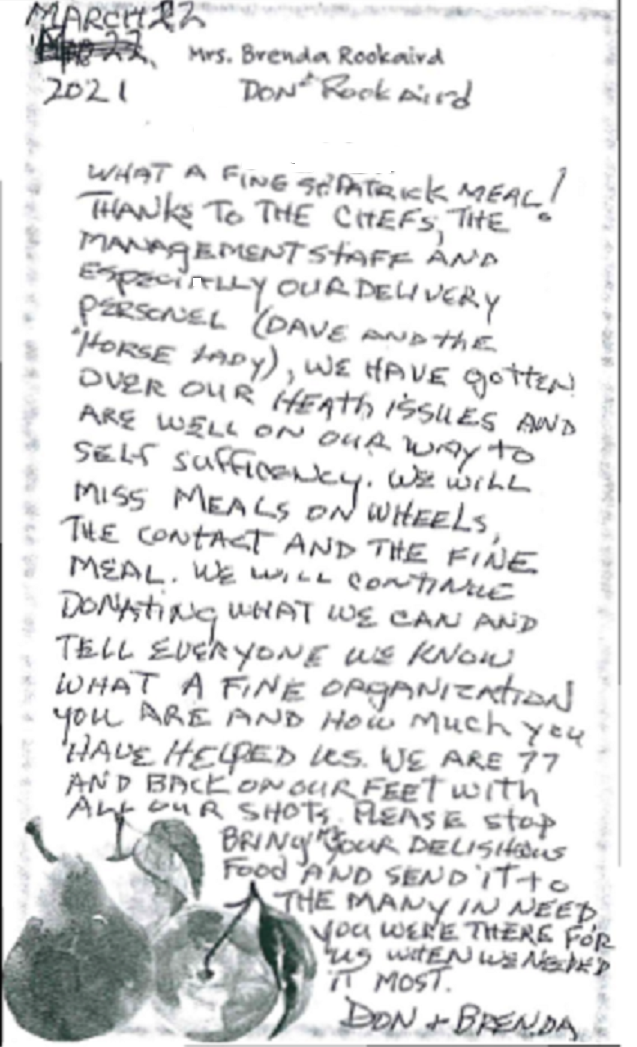 MARCH 22
2021
Mrs. Brenda Rookaird
DON + Rookaird
WHAT A FINE ST PATRICK MEAL!
THANKS TO THE CHEFS, THE
MANAGEMENT STAFF AND
ESPECIALLY OUR DELIVERY
PERSONEL (DAVE AND THE
"HORSE LADY), WE HAVE GOTTEN
OVER OUR HEATH ISSUES AND
ARE WELL ON OUR WAY TO
SELF SUFFICENCY. WE WILL
MISS MEALS ON WHEELS,
THE CONTACT AND THE FINE
MEAL. WE WILL CONTINUE
DONATING WHAT WE CAN AND
TELL EVERYONE WE KNOW
WHAT A FINE ORGANIZATION
YOU ARE AND HOW MUCH YOU
HAVE HELPED US. WE ARE 77
AND BACK ON OUR FEET WITH
ALL OUR SHOTS. PLEASE STOP
BRINGING YOUR DELISHIOUS
FOOD AND SEND IT TO
THE MANY IN NEED
YOU WERE THERE FOR
US WHEN WE NEEDED
IT MOST.
DON + BRENDA